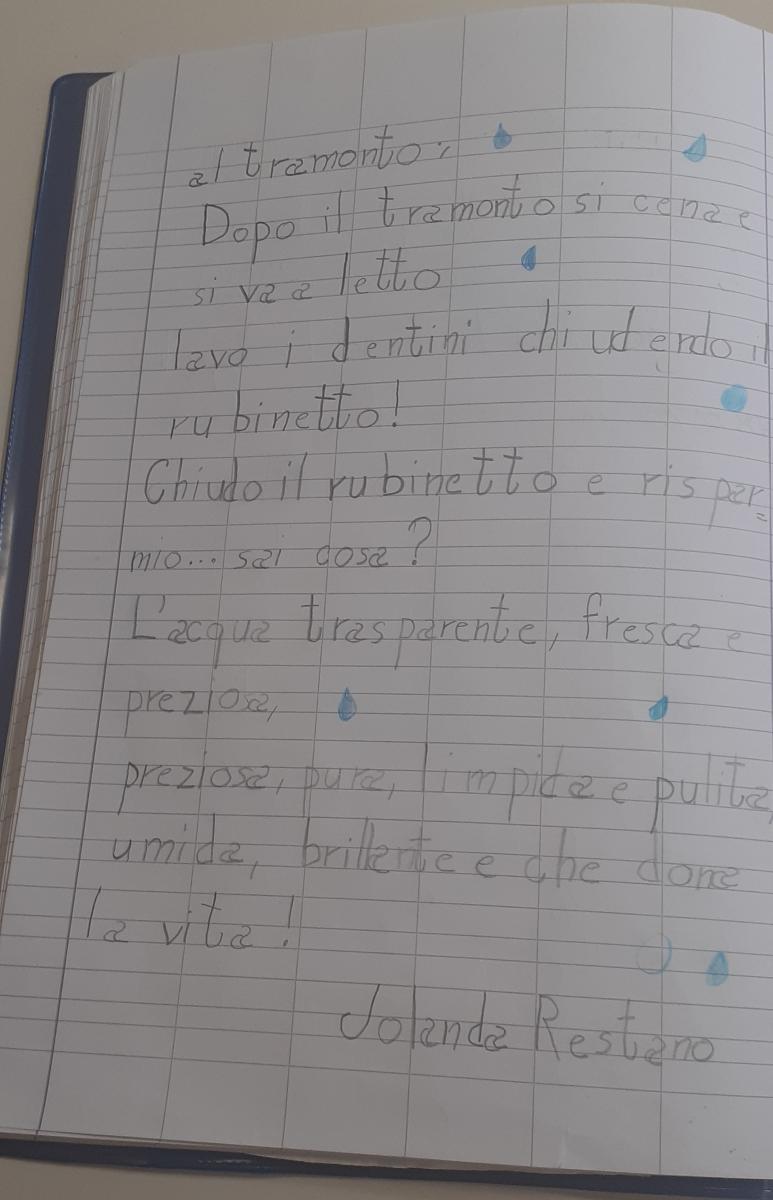 al tramonto;
Dopo il tramonto si cena e
si va a letto
lavo i dentini chiudendo il
rubinetto!
Chiudo il rubinetto e rispar=
mio... sai cosa?
L'acqua trasparente, fresca e
preziosa,
preziosa, pura, limpida e pulita,
umida, brillante e che dona
la vita!
Jolanda Restano